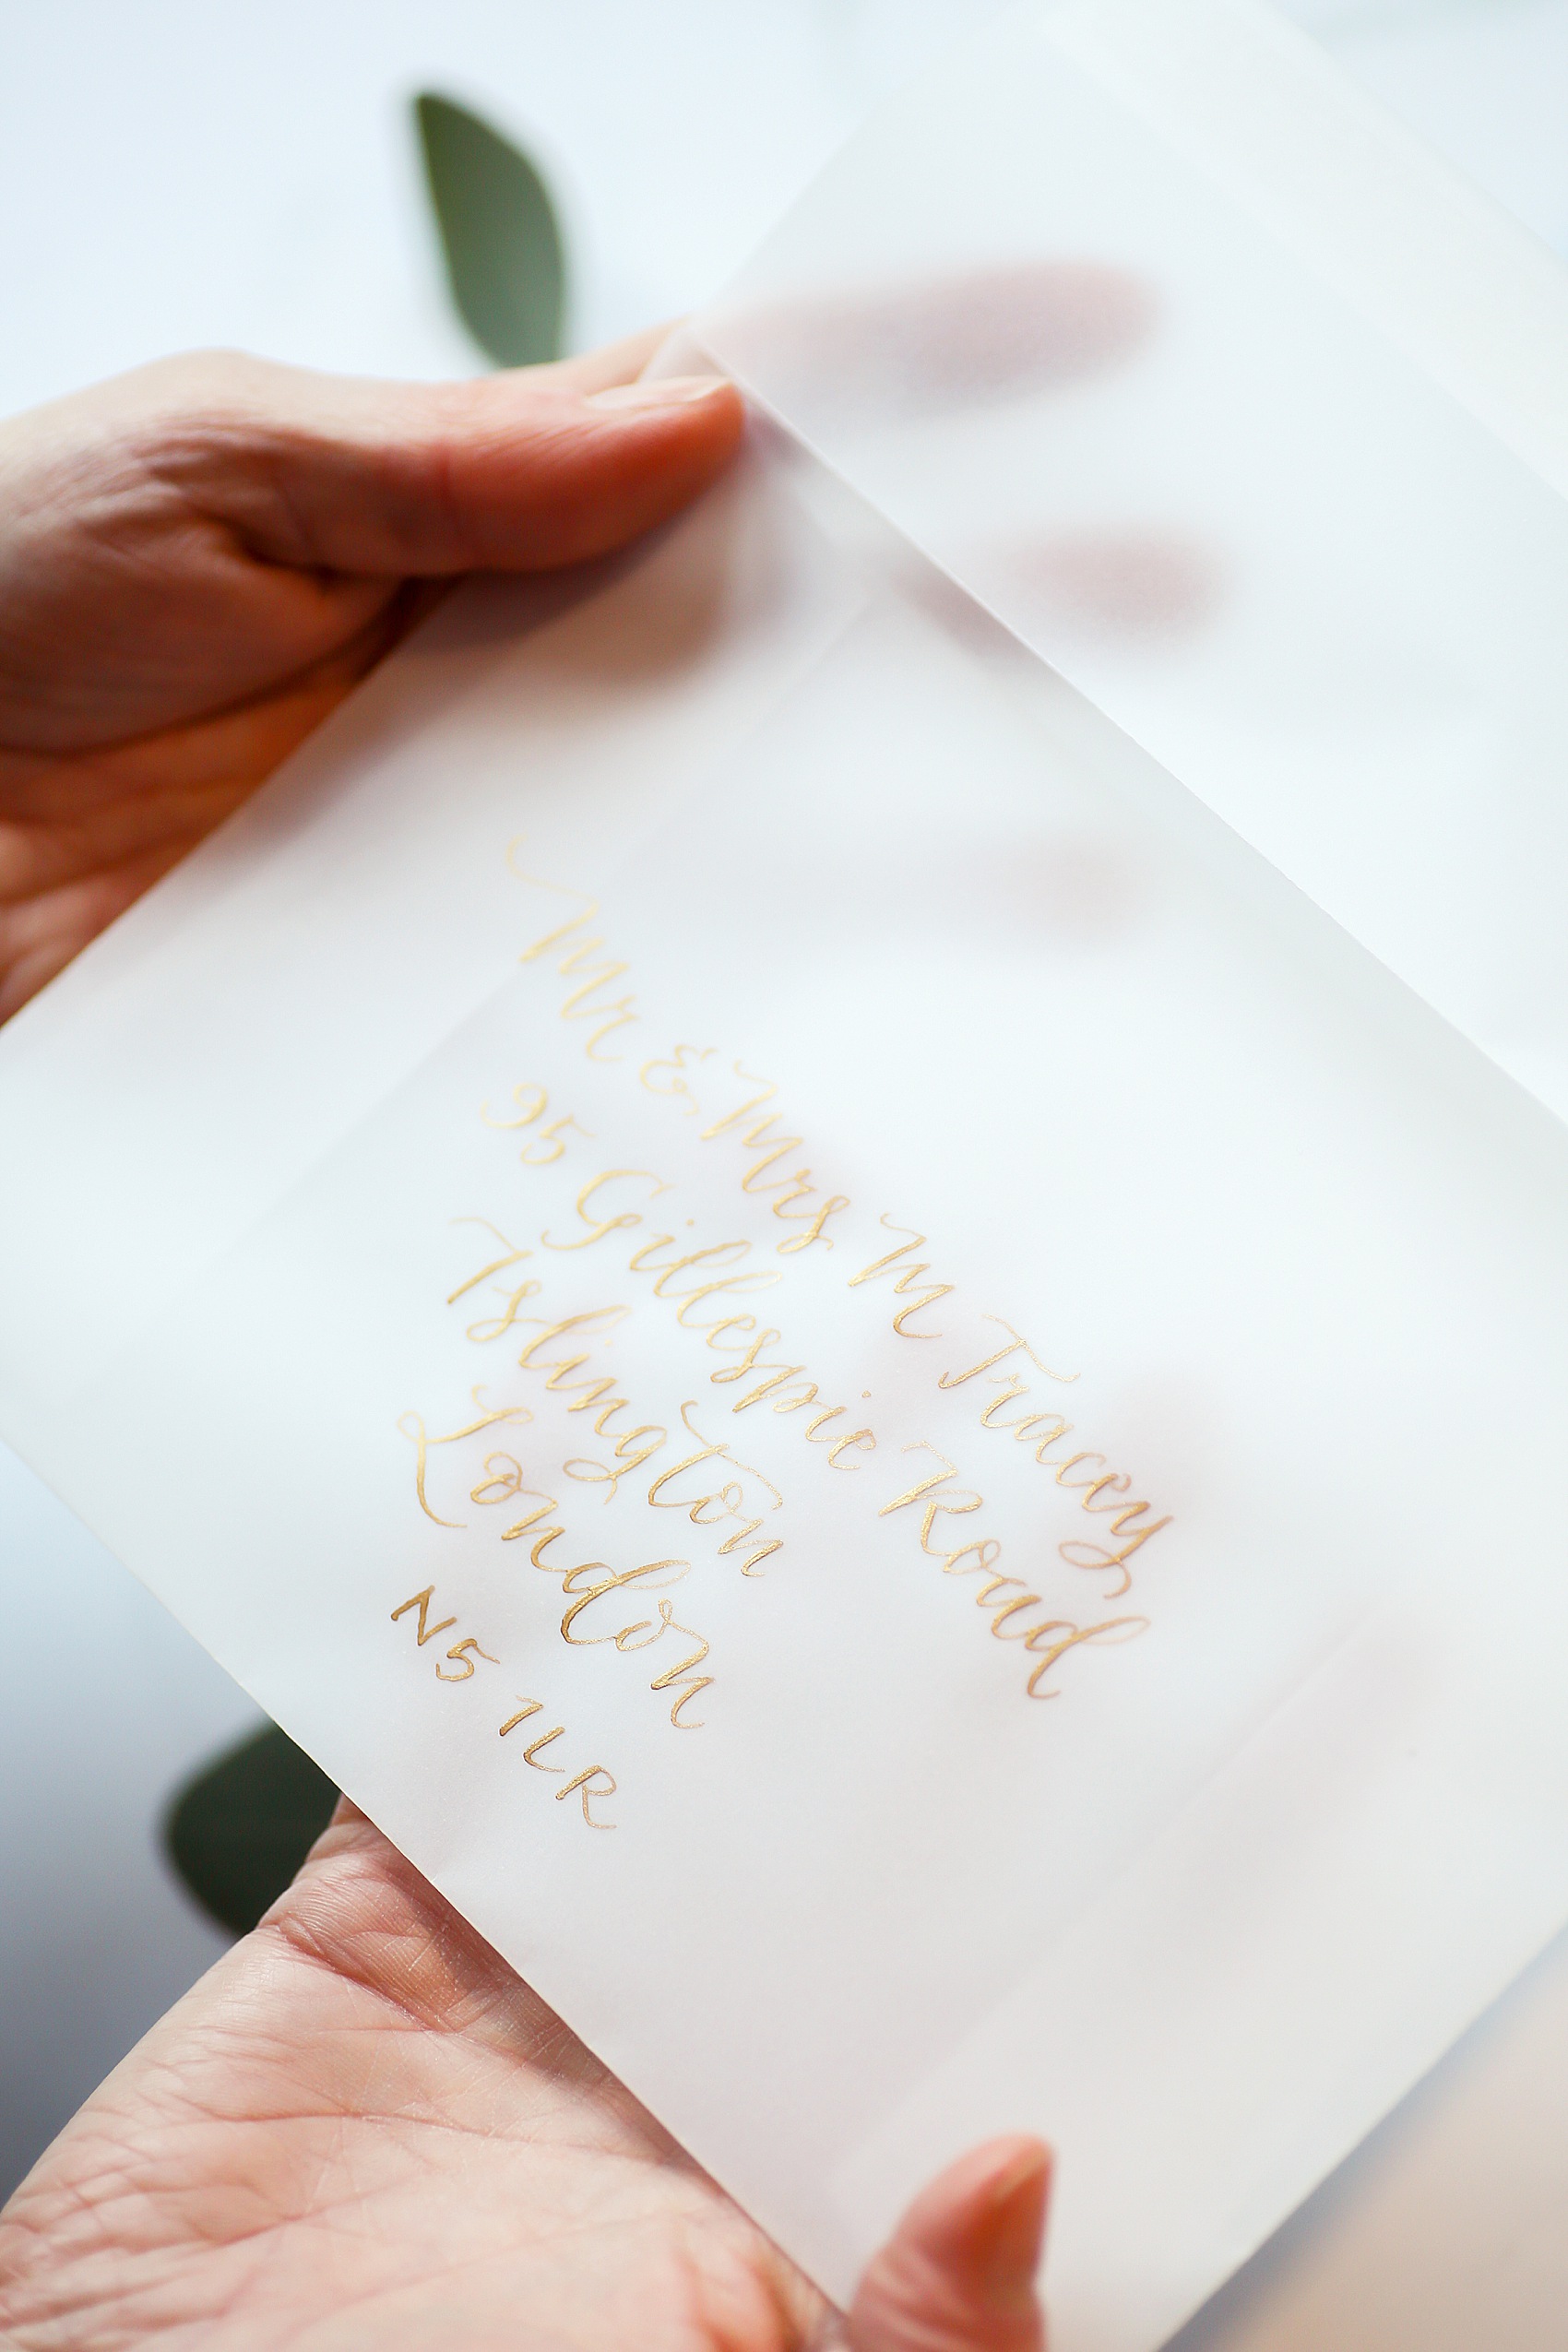 Mr & Mrs M Tracey
95 Gillespie Road
Islington
London
N5 1LR